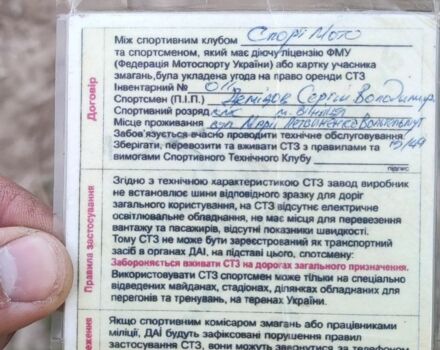 Договір
Між спортивним клубом Спорт Мото
та спортсменом, який має діючу ліцензію ФМУ
(Федерація Мотоспорту України) або картку учасника
змагань, була укладена угода на право оренди СТЗ
Інвентарний № 011
Спортсмен (П.І.П.) Демідов Сергій Володимир
Спортивний розряд
Місце проживання
Забов'язується вчасно проводити технічне обслуговування
Зберігати, перевозити та вживати СТЗ з правилами та
вимогами Спортивного Технічного Клубу
підпис
Правила застосування
Згідно з технічною характеристикою СТЗ завод виробник
не встановлює шини відповідного зразку для доріг
загального користування, на СТЗ відсутнє електричне
освітлювальне обладнання, не має місця для перевезення
вантажу та пасажирів, відсутні показники швидкості.
Тому СТЗ не може бути зареєстрований як транспортний
засіб в органах ДАІ, на підставі цього, спотсмену:
Забороняється вживати СТЗ на дорогах загального призначення.
Використовувати СТЗ спортсмен може тільки на спеціально
відведених майданах, стадіонах, ділянках обладнаних для
перегонів та тренувань, на теренах України.
Якщо спортивним комісаром змагань або працівниками
міліції, ДАІ будуть зафіксовані порушення правил
застосування СТЗ, вони можуть звернутися за телефоном